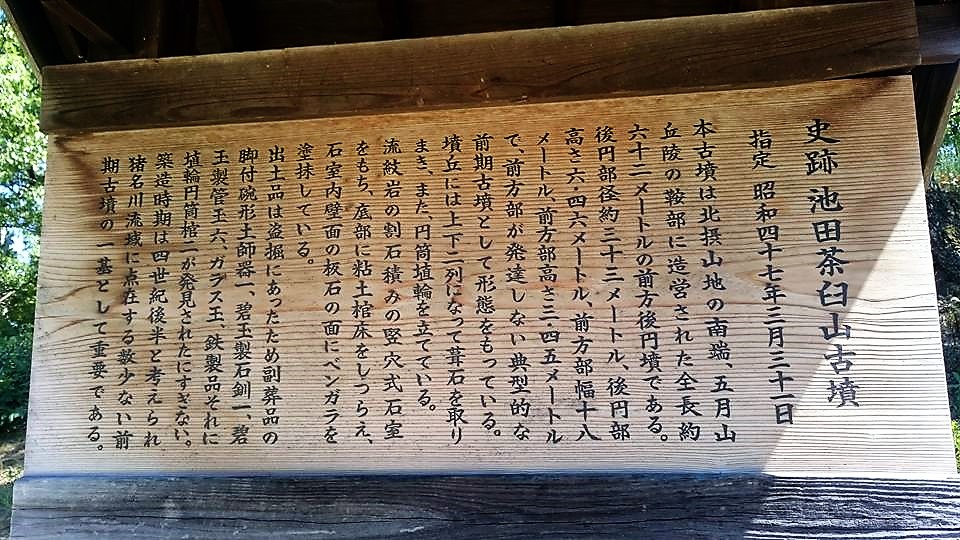 史跡 池田茶臼山古墳
指定 昭和四十七年三月三十一日
本古墳は北摂山地の南端、五月山
丘陵の鞍部に造営された全長約
六十二メートルの前方後円墳である。
後円部径約三十三メートル、後円部
高さ六・四六メートル、前方部幅十八
メートル、前方部高さ三・四五メートル
で、前方部が発達しない典型的な
前期古墳として形態をもっている。
墳丘には上下二列になって葺石を取り
まき、また、円筒埴輪を立てている。
流紋岩の割石積みの竪穴式石室
をもち、底部に粘土棺床をしつらえ、
石室内壁面の板石の面にベンガラを
塗抹している。
出土品は盗掘にあったため副葬品の
脚付碗形土師器一、碧玉製石釧一、碧
玉製管玉六、ガラス玉、鉄製品それに
埴輪円筒棺二が発見されたにすぎない。
築造時期は四世紀後半と考えられ
猪名川流域に点在する数少ない前
期古墳の一基として重要である。